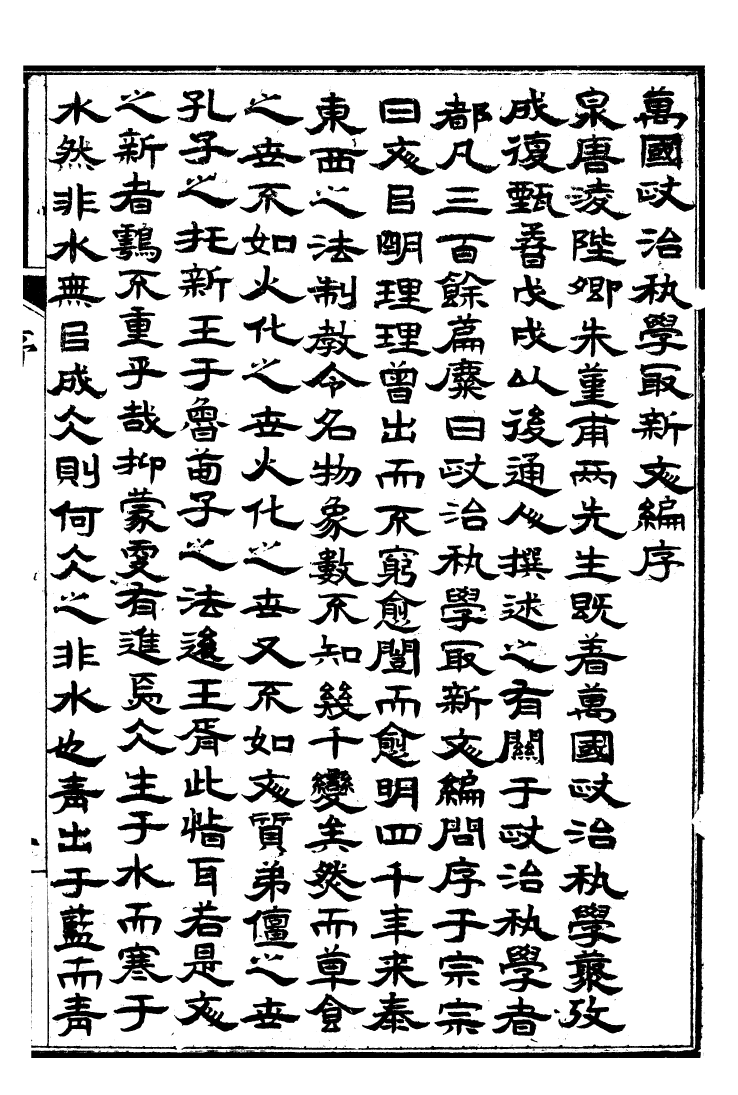 萬國政治秇學冣新文編序
泉唐淩陛卿朱堇甫兩先生既著萬國政治秇學叢攷
成復甄戊戌以後通人撰述之有關于政治秇學者
都凡三百餘篇麋曰政治秇學冣新文編問序于宗宗
曰文㠯朙理理曾出而不窮愈闓而愈明四千年来奉
東西之法制教令名物象數不知幾千變矣然而草食
之世不如火化之世火化之世又不如文質弟儃之世
孔子之托新王于魯荀子之法後王胥此恉耳若是文
之新者不重乎哉抑蒙更有進焉仌生于水而寒于
水然非水無㠯成仌則何仌之非水也青出于藍而青